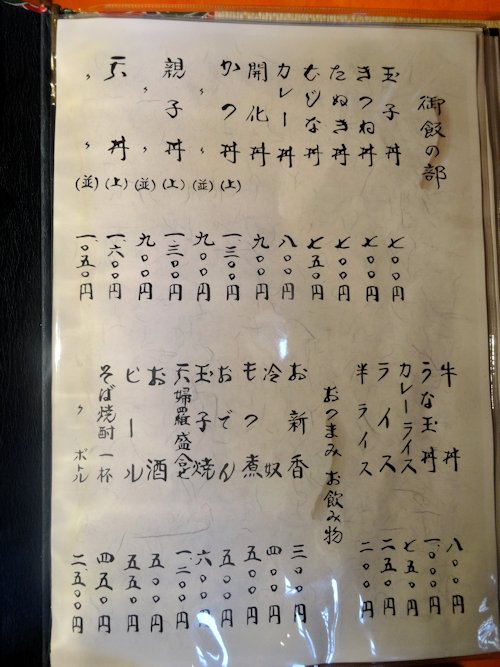 御飯の部
玉子丼 七〇〇円
きつね丼 七〇〇円
たぬき丼 七〇〇円
むじな丼 七五〇円
カレー丼 八〇〇円
開化丼 九〇〇円
かつ丼(上) 一、三〇〇円
〃 〃(並) 九〇〇円
親子丼(上) 一、三〇〇円
〃 〃(並) 九〇〇円
天丼(上) 一、六〇〇円
〃 〃(並) 一、〇五〇円
牛丼 八〇〇円
うな玉丼 一、〇〇〇円
カレーライス 七五〇円
ライス 二五〇円
半ライス 二〇〇円
おつまみ お飲み物
お新香 三〇〇円
冷奴 四〇〇円
もつ煮 五〇〇円
おでん 五〇〇円
玉子焼 六〇〇円
天婦羅盛合せ 一、二〇〇円
お酒 五〇〇円
ビール 五五〇円
そば焼酎 一杯 四五〇円
〃 ボトル 二、五〇〇円